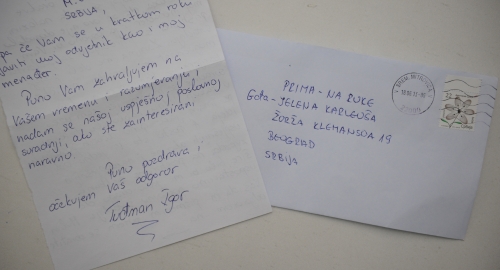 SRBIJA,
pa će Vam se u kratkom roku
javiti moj odvjetnik kao i moj
menađer.
Puno Vam zahvaljujem na
Vašem vremenu i razumijevanju i
nadam se našoj uspješnoj poslovnoj
suradnji, ako ste zainteresirani,
naravno.
Puno pozdrava i
očekujem Vaš odgovor
Tuđman Igor
PRIMA - NA RUKE
Gđa - JELENA KARLEUŠA
ŽORŽA KLEMANSOA 19
BEOGRAD
SRBIJA